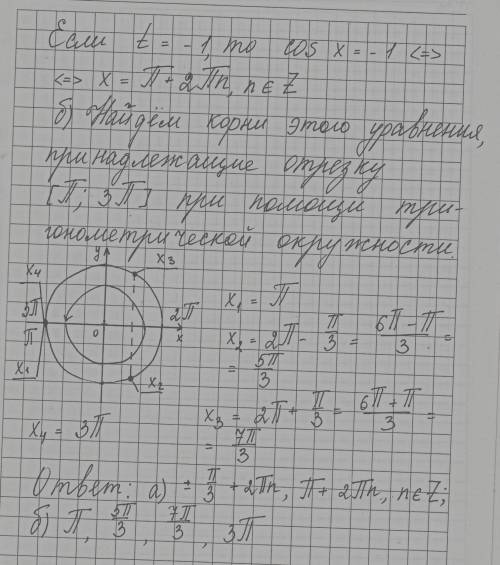 Если t = -1, то cos x = -1 <=>
<=> x = π + 2πn, n ∈ Z
б) Найдём корни этого уравнения,
принадлежащие отрезку
[π; 3π] при помощи три-
гонометрической окружности.
y
x₄
x₃
3π
2π
π
0
x
x₁
x₂
x₁ = π
x₂ = 2π - π/3 = (6π - π)/3 =
= 5π/3
x₃ = 2π + π/3 = (6π + π)/3 =
= 7π/3
x₄ = 3π
Ответ: а) ± π/3 + 2πn, π + 2πn, n ∈ Z;
б) π, 5π/3, 7π/3, 3π